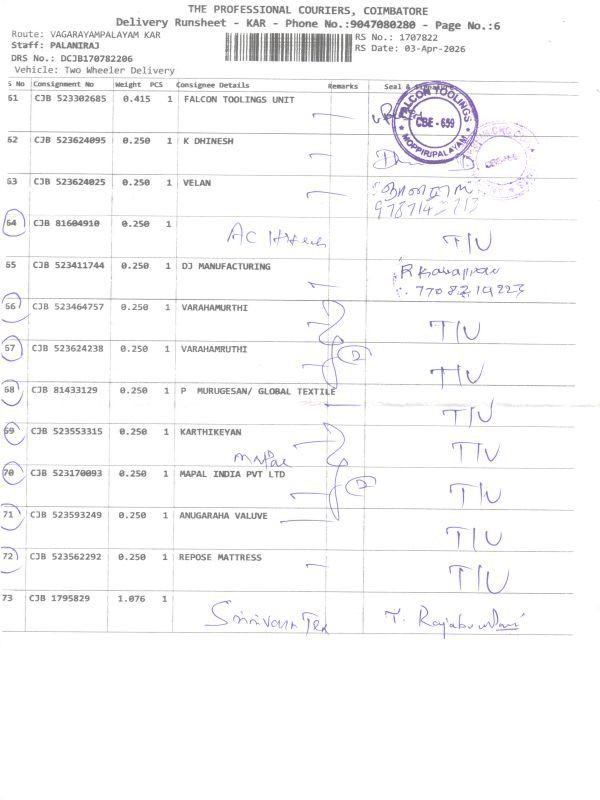 THE PROFESSIONAL COURIERS, COIMBATORE
Delivery Runsheet - KAR - Phone No.:9047080280 - Page No.:6
Route: VAGARAYAMPALAYAM KAR
Staff: PALANIRAJ
DRS No.: DCJB170782206
Vehicle: Two Wheeler Delivery
RS No.: 1707822
RS Date: 03-Apr-2026
S No Consignment No Weight PCS Consignee Details Remarks Seal & Signature
61 CJB 523302685 0.415 1 FALCON TOOLINGS UNIT
FALCON TOOLINGS
CBE - 659
MOPPIRIPALAYAM
62 CJB 523624095 0.250 1 K DHINESH
63 CJB 523624025 0.250 1 VELAN
64 CJB 81604910 0.250 1 T/U
65 CJB 523411744 0.250 1 DJ MANUFACTURING
66 CJB 523464757 0.250 1 VARAHAMURTHI T/U
67 CJB 523624238 0.250 1 VARAHAMRUTHI 2 T/U
68 CJB 81433129 0.250 1 P MURUGESAN/ GLOBAL TEXTILE T/U
69 CJB 523553315 0.250 1 KARTHIKEYAN T/U
70 CJB 523170093 0.250 1 MAPAL INDIA PVT LTD 2 T/U
71 CJB 523593249 0.250 1 ANUGARAHA VALUVE T/U
72 CJB 523562292 0.250 1 REPOSE MATTRESS T/U
73 CJB 1795829 1.076 1